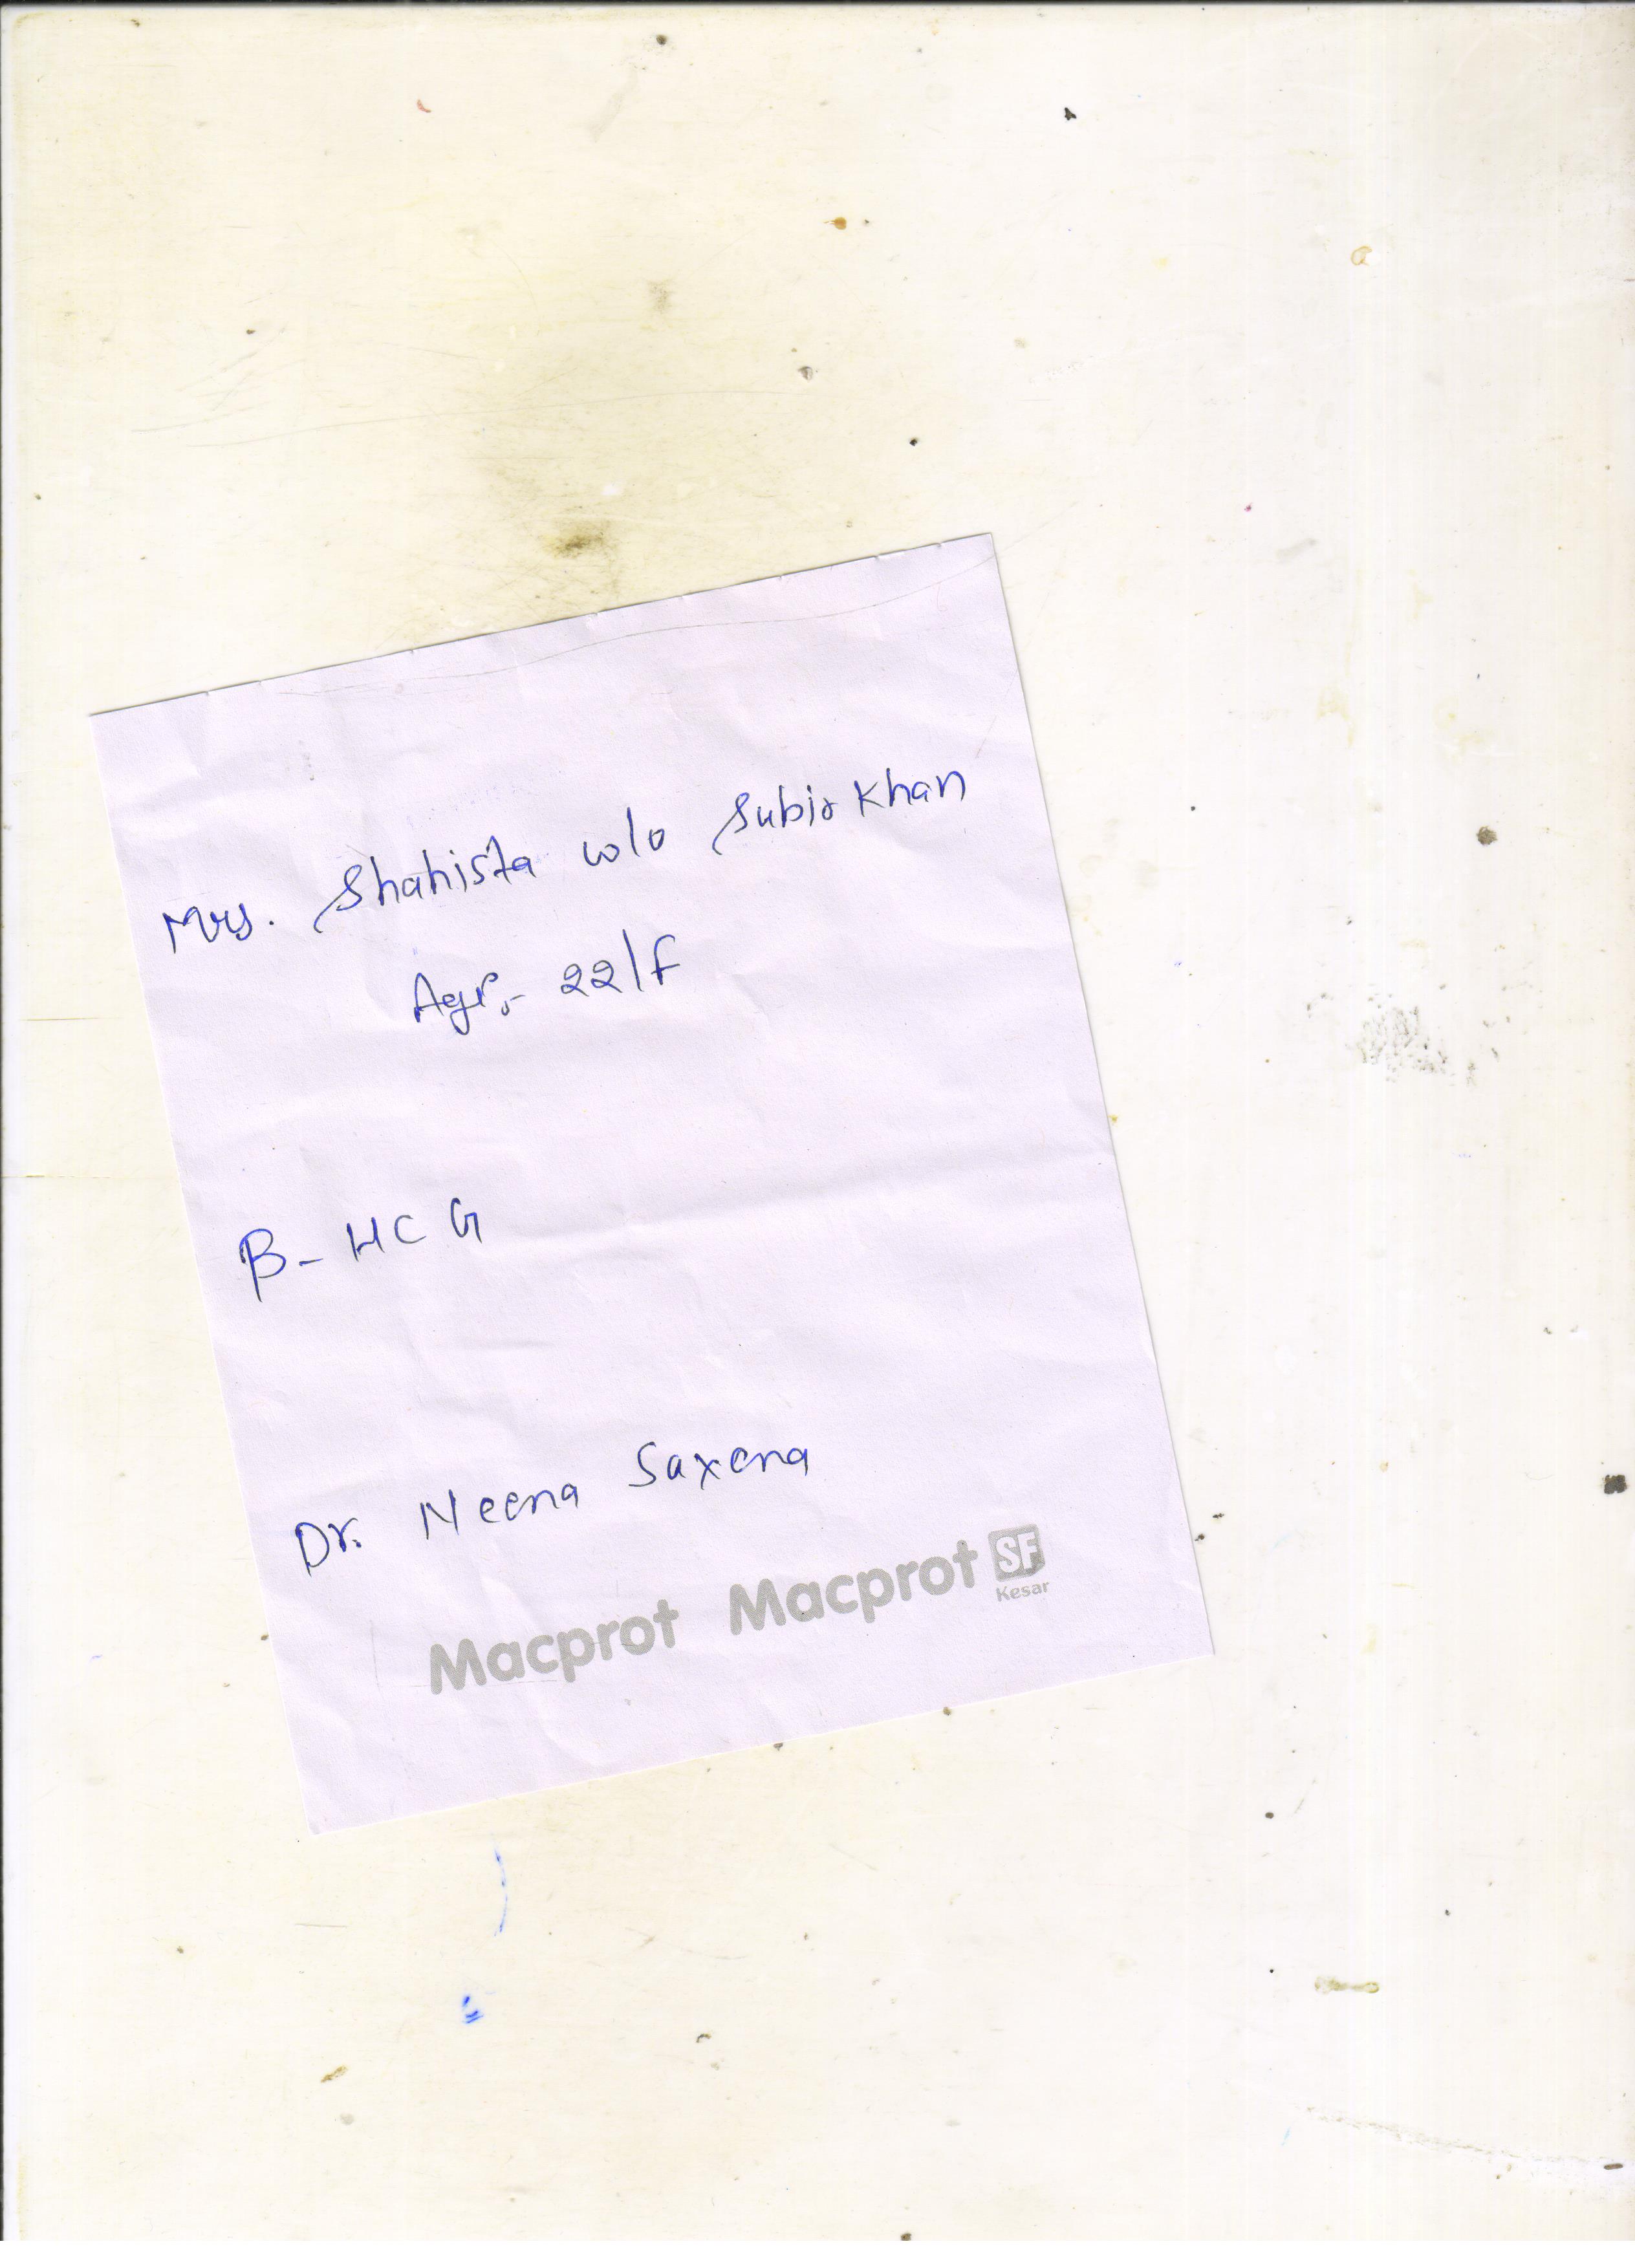 Mrs. Shahista w/o Subir Khan
Age:- 22/F
β- HCG
Dr. Neena Saxena
Macprot Macprot SF
Kesar